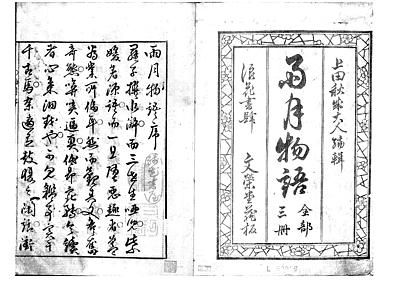 上田秋成大人編輯
雨月物語 全部三冊
浪花書肆 文榮堂藏板
雨月物語序
羅子撰水滸而三世生唖児紫
媛著源語而一旦墮惡趣者蓋
為業所偪耳然而觀其文各奮
奇態揜哢逼真低昂宛轉令讀
者心氣洞越也可見鑑事實于
千古焉余適有鼓腹之閑話衝